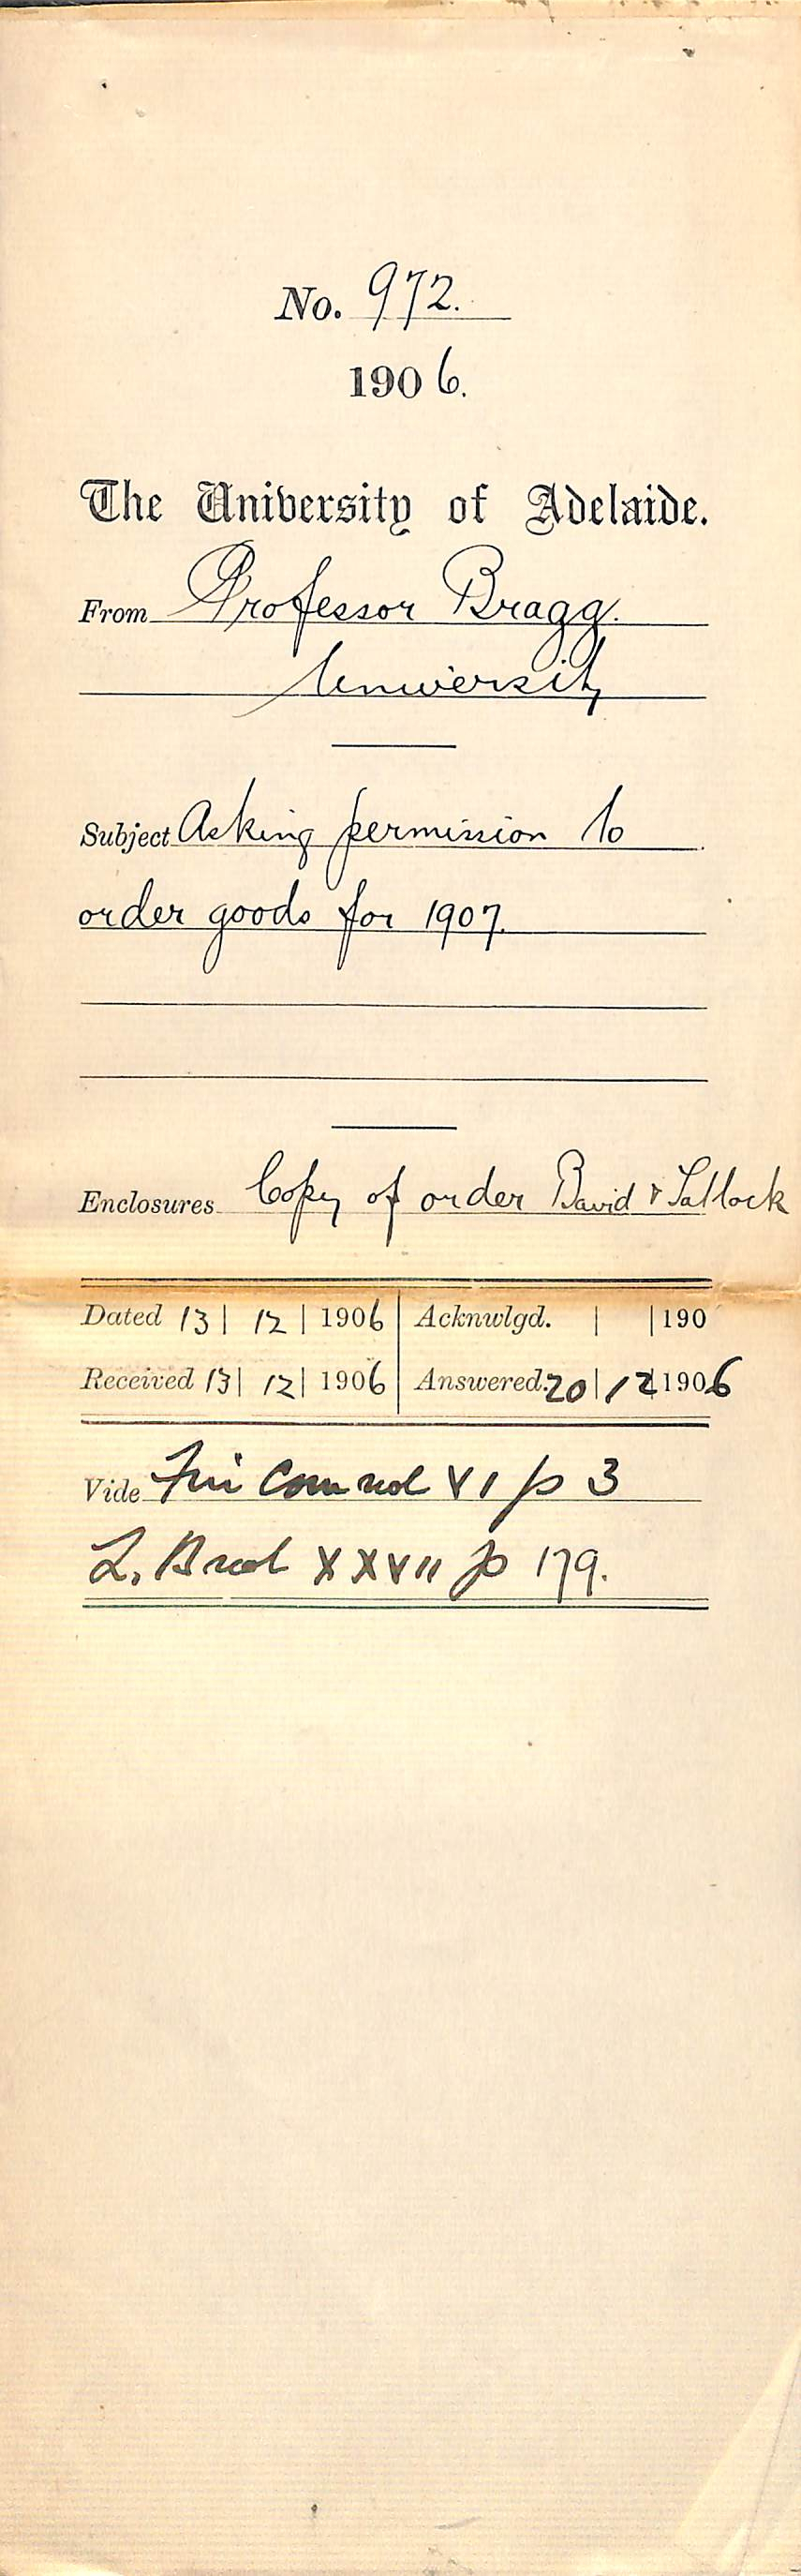 No. 972.
1906.
The University of Adelaide.
From Professor Bragg.
University
Subject Asking permission to
order goods for 1907.
Enclosures Copy of order David & Tatlock
Dated 13 | 12 | 1906 Acknwlgd. | | 190
Received 13 | 12 | 1906 Answered. 20 | 12 | 1906
Vide Fin Com vol VI p 3
L. B vol XXVII p 179.